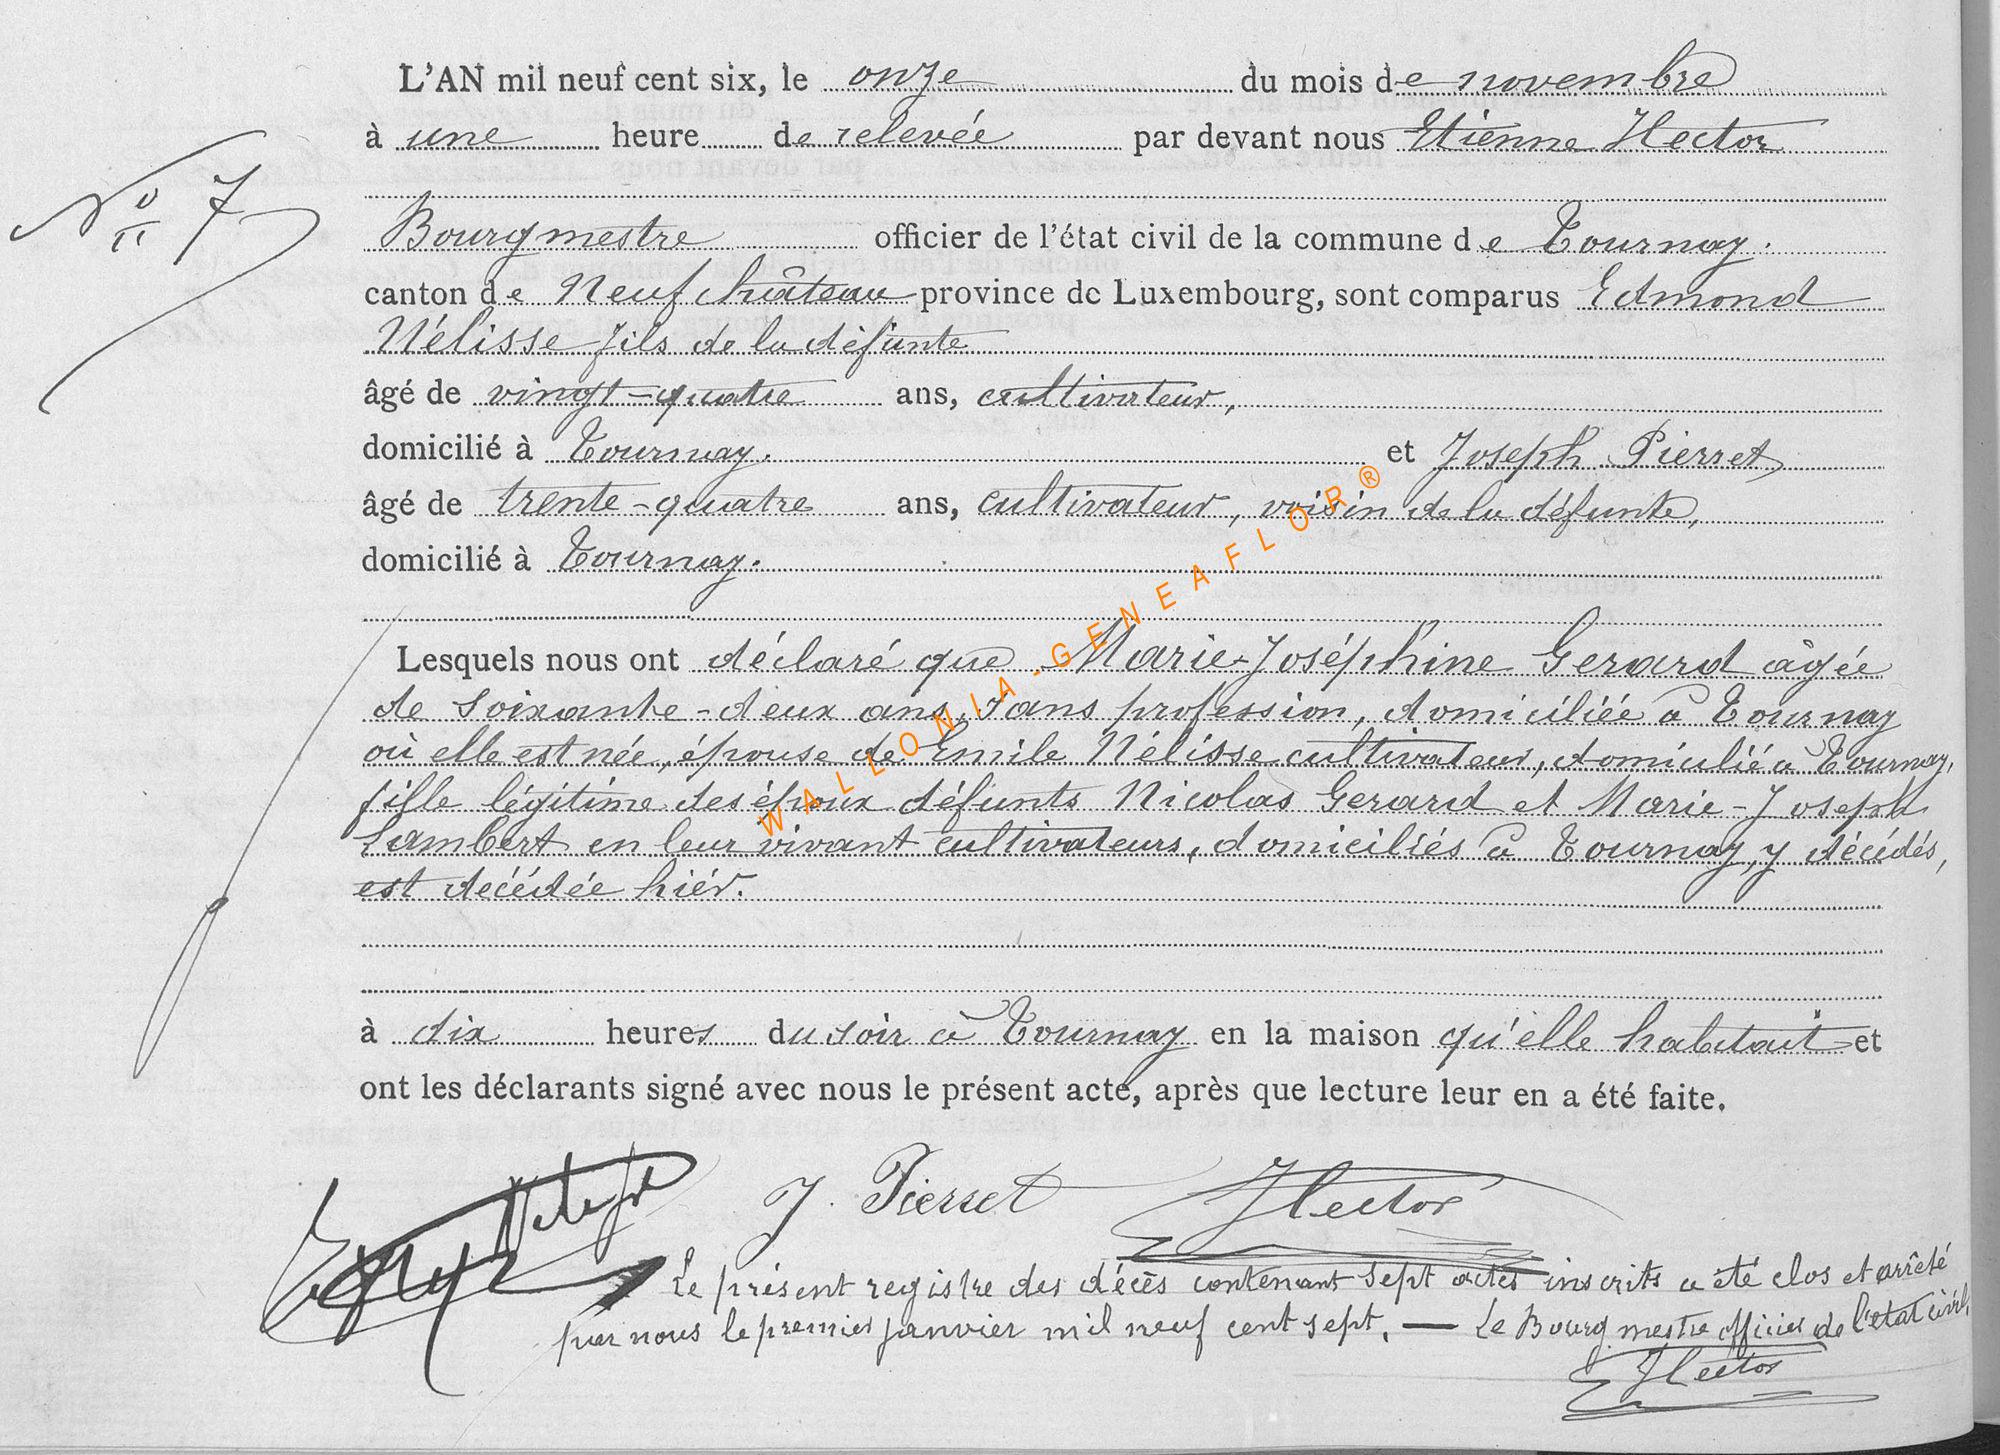 L'AN mil neuf cent six, le onze du mois de novembre
à une heure de relevée par devant nous Etienne Hector
N° 7
Bourgmestre officier de l'état civil de la commune de Tournay.
canton de Neufchâteau province de Luxembourg, sont comparus Edmond
Nélisse fils de la défunte
âgé de vingt-quatre ans, cultivateur,
domicilié à Tournay. et Joseph Pierret,
âgé de trente-quatre ans, cultivateur, voisin de la défunte,
domicilié à Tournay.
WALLONIA-GENEAFLOR®
Lesquels nous ont déclaré que Marie-Joséphine Gerard âgée
de soixante-deux ans, sans profession, domiciliée à Tournay
où elle est née, épouse de Emile Nélisse cultivateur, domicilié à Tournay,
fille légitime des époux défunts Nicolas Gerard et Marie-Joseph
Lambert en leur vivant cultivateurs, domiciliés à Tournay, y décédés,
est décédée hier.
à dix heures du soir à Tournay en la maison qu'elle habitait et
ont les déclarants signé avec nous le présent acte, après que lecture leur en a été faite.
J. Pierret Hector
Le présent registre des décès contenant sept actes inscrits a été clos et arrêté
par nous le premier janvier mil neuf cent sept. — Le Bourgmestre officier de l'état civil,
Hector